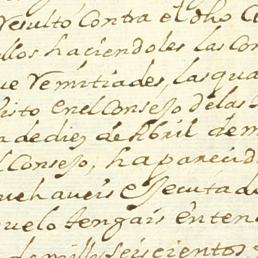 resultó contra el dho
llos haciendoles las Con
ue remitiades, las qua
visto, en el Consejo de las
n de diez de Abril de m
l Consejo, ha parecid
ue haveis executado
uelo tengais enten
de mill seiscientos